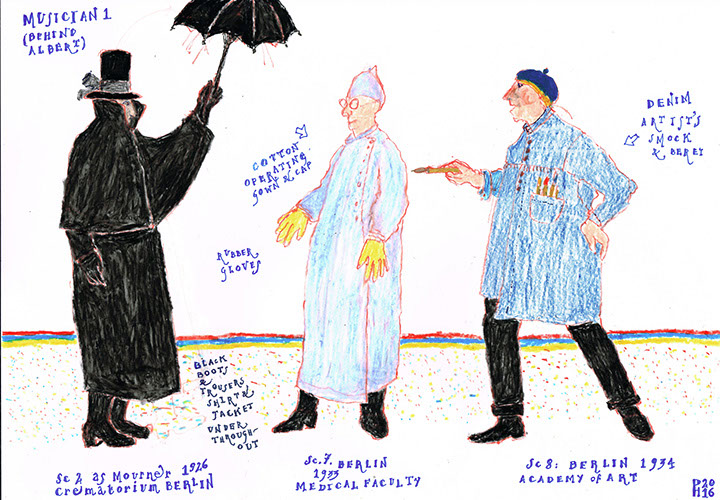 MUSICIAN 1
(BEHIND
ALBERT)
COTTON
OPERATING
GOWN & CAP
RUBBER
GLOVES
DENIM
ARTIST'S
SMOCK
& BERET
BLACK
BOOTS
&
TROUSERS
SHIRT &
JACKET
UNDER
THROUGH-
OUT
Sc 2 as Mourner 1926
Crematorium BERLIN
Sc. 7. BERLIN
1933
MEDICAL FACULTY
Sc 8: BERLIN 1934
ACADEMY of ART